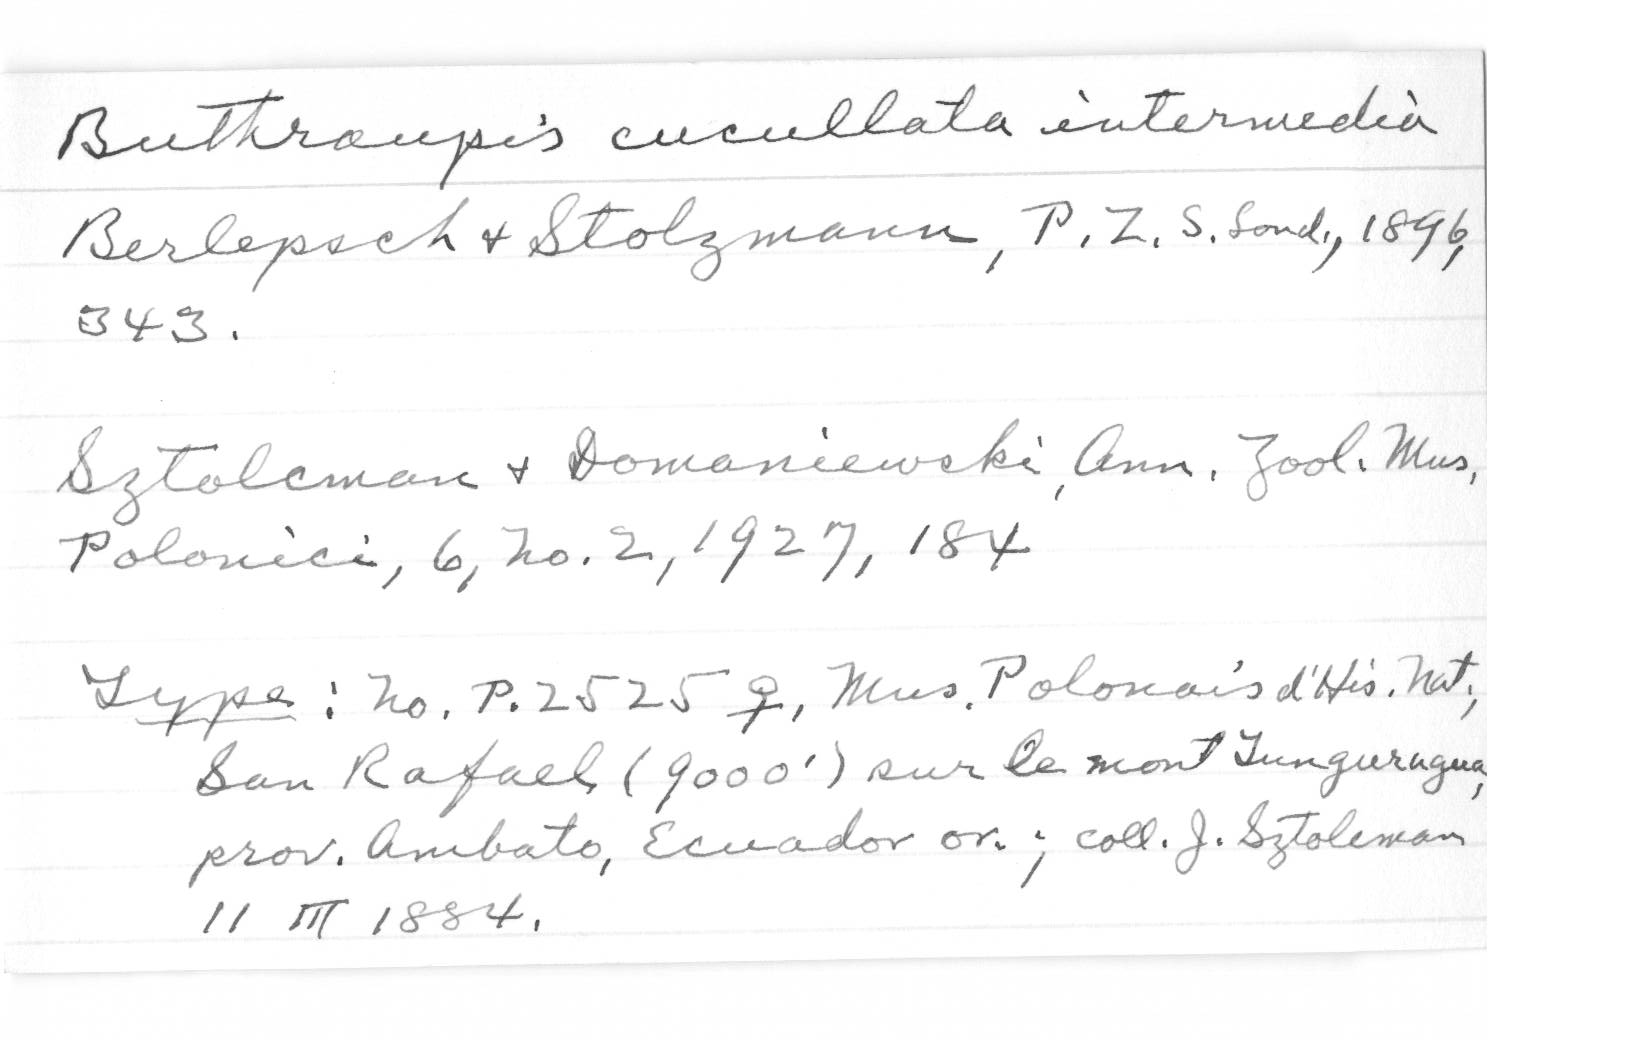 Buthraupis cucullata intermedia
Berlepsch & Stolzmann, P. Z. S. Lond., 1896,
343.
Sztolcman & Domaniewski, Ann. Zool. Mus.
Polonici, 6, no. 2, 1927, 184
Type: no. P. 2525 ♀, Mus. Polonais d'His. Nat.;
San Rafael (9000') sur le mont Tunguragua,
prov. Ambato, Ecuador or.; coll. J. Sztolcman
11 III 1884.